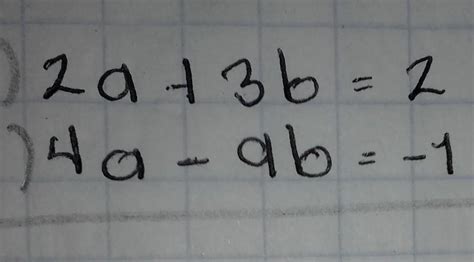 ) 2a + 3b = 2
) 4a - 9b = -1